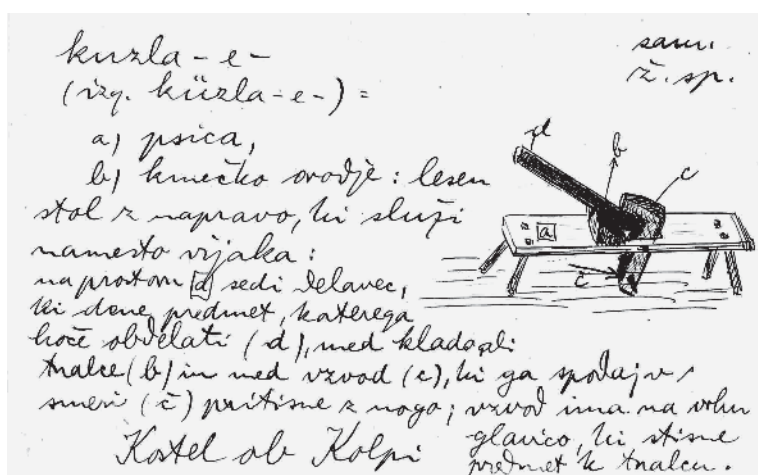 kuzla -e-
sam.
ž. sp.
(izg. küzla -e-) =
a) psica,
b) kmečko orodje: lesen
stol z napravo, ki služi
namesto vijaka:
na prostoru a sedi delavec,
ki dene predmet, katerega
hoče obdelati (d), med klado ali
tnalce (b) in med vzvod (c), ki ga spodaj v
smeri (č) pritisne z nogo; vzvod ima na vrhu
glavico, ki stisne
predmet k tnalcu.
Kostel ob Kolpi
d
b
c
a
č